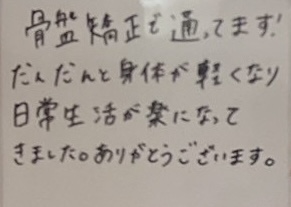 骨盤矯正で通ってます!
だんだんと身体が軽くなり
日常生活が楽になって
きました。ありがとうございます。